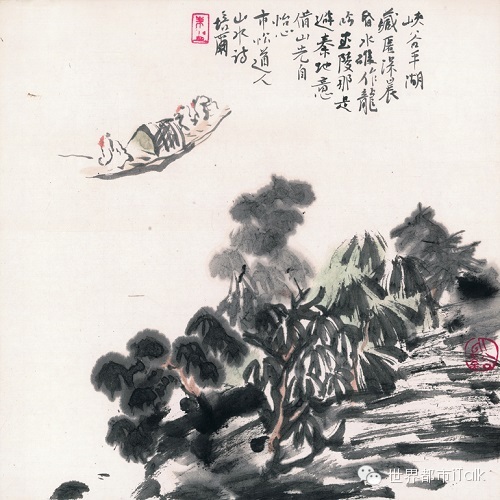 峡谷平湖
藏匿深晨
昏水碓作龍
吟武陵那是
避秦地意
借山光自
怡心
市吟道人
山水诗
培爾
世界都市iTalk